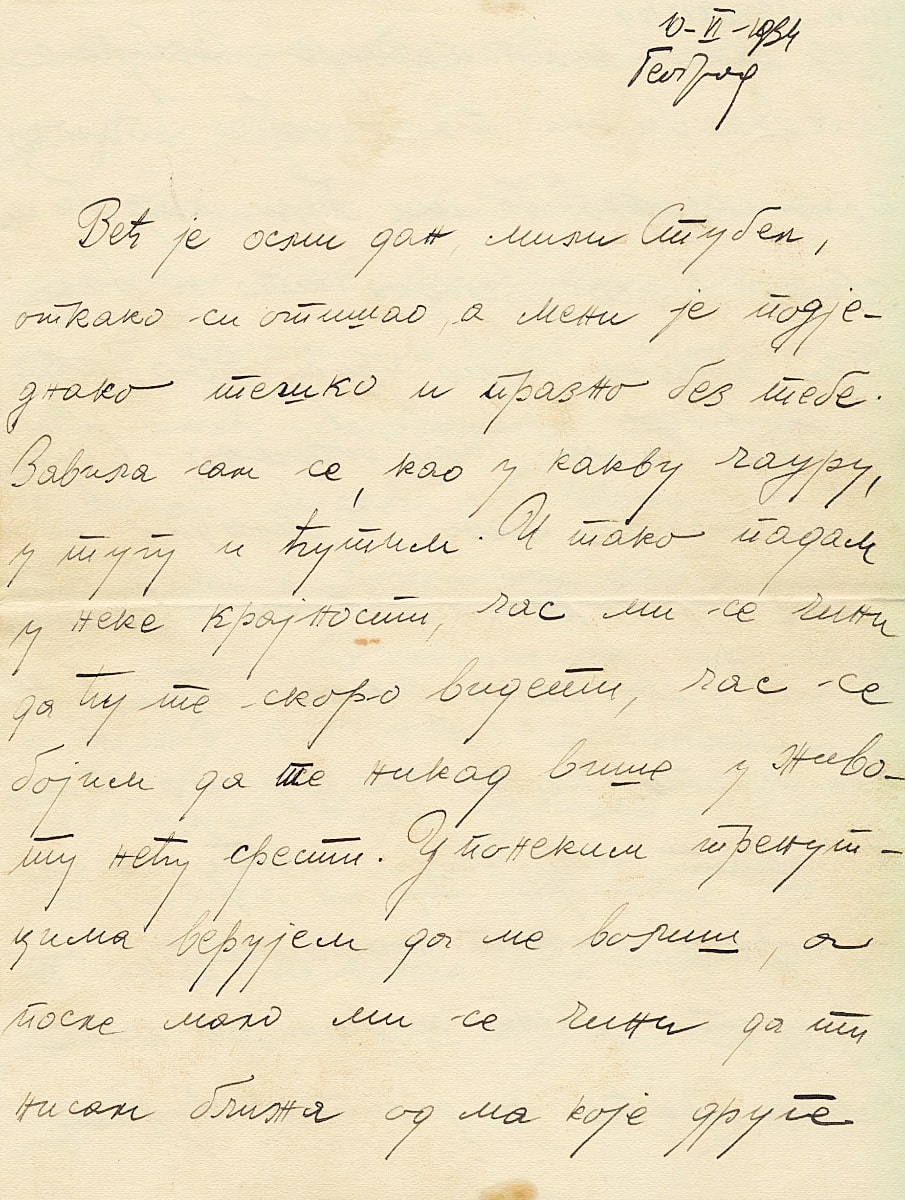 10-VI-1934
Београд
Већ је осми дан, мили Стубел,
откако си отишао, а мени је подје-
днако тешко и празно без тебе.
Завила сам се, као у какву чауру,
у тугу и ћутим. И тако падам
у неке крајности, час ми се чини
да ћу те скоро видети, час се
бојим да те никад више у живо-
ту нећу срести. У понеким тренут-
цима верујем да ме волиш, а
после мало ми се чини да ти
нисам ближа од ма које друге